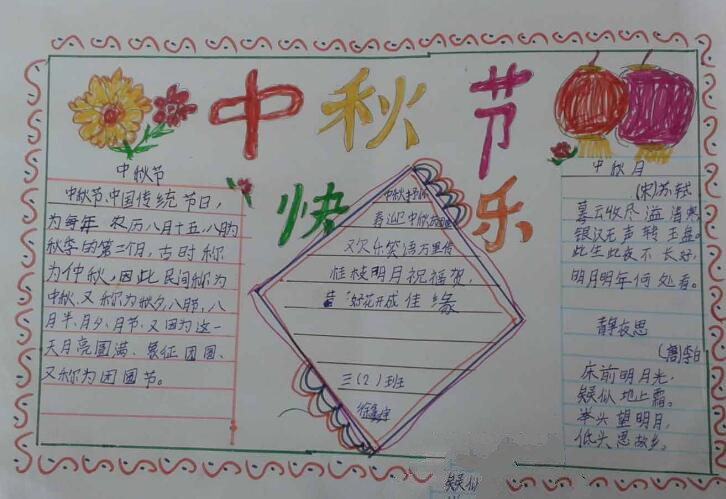 中秋节
快乐
中秋节
中秋节、中国传统节日,
为每年 农历八月十五、八月为
秋季的第二个月,古时称
为仲秋,因此民间称为
中秋、又称为秋夕、八月节、八
月半、月夕、月节、又因为这一
天月亮圆满、象征团圆、
又称为团圆节。
喜迎中秋
又欢乐笑语万里传
桂枝明月祝福贺,
好花开成佳缘
三(2)班
中秋月
(宋)苏轼
暮云收尽溢清寒
银汉无声转玉盘。
此生此夜不长好,
明月明年何处看。
静夜思
(唐)李白
床前明月光,
疑似地上霜。
举头望明月,
低头思故乡。
疑似